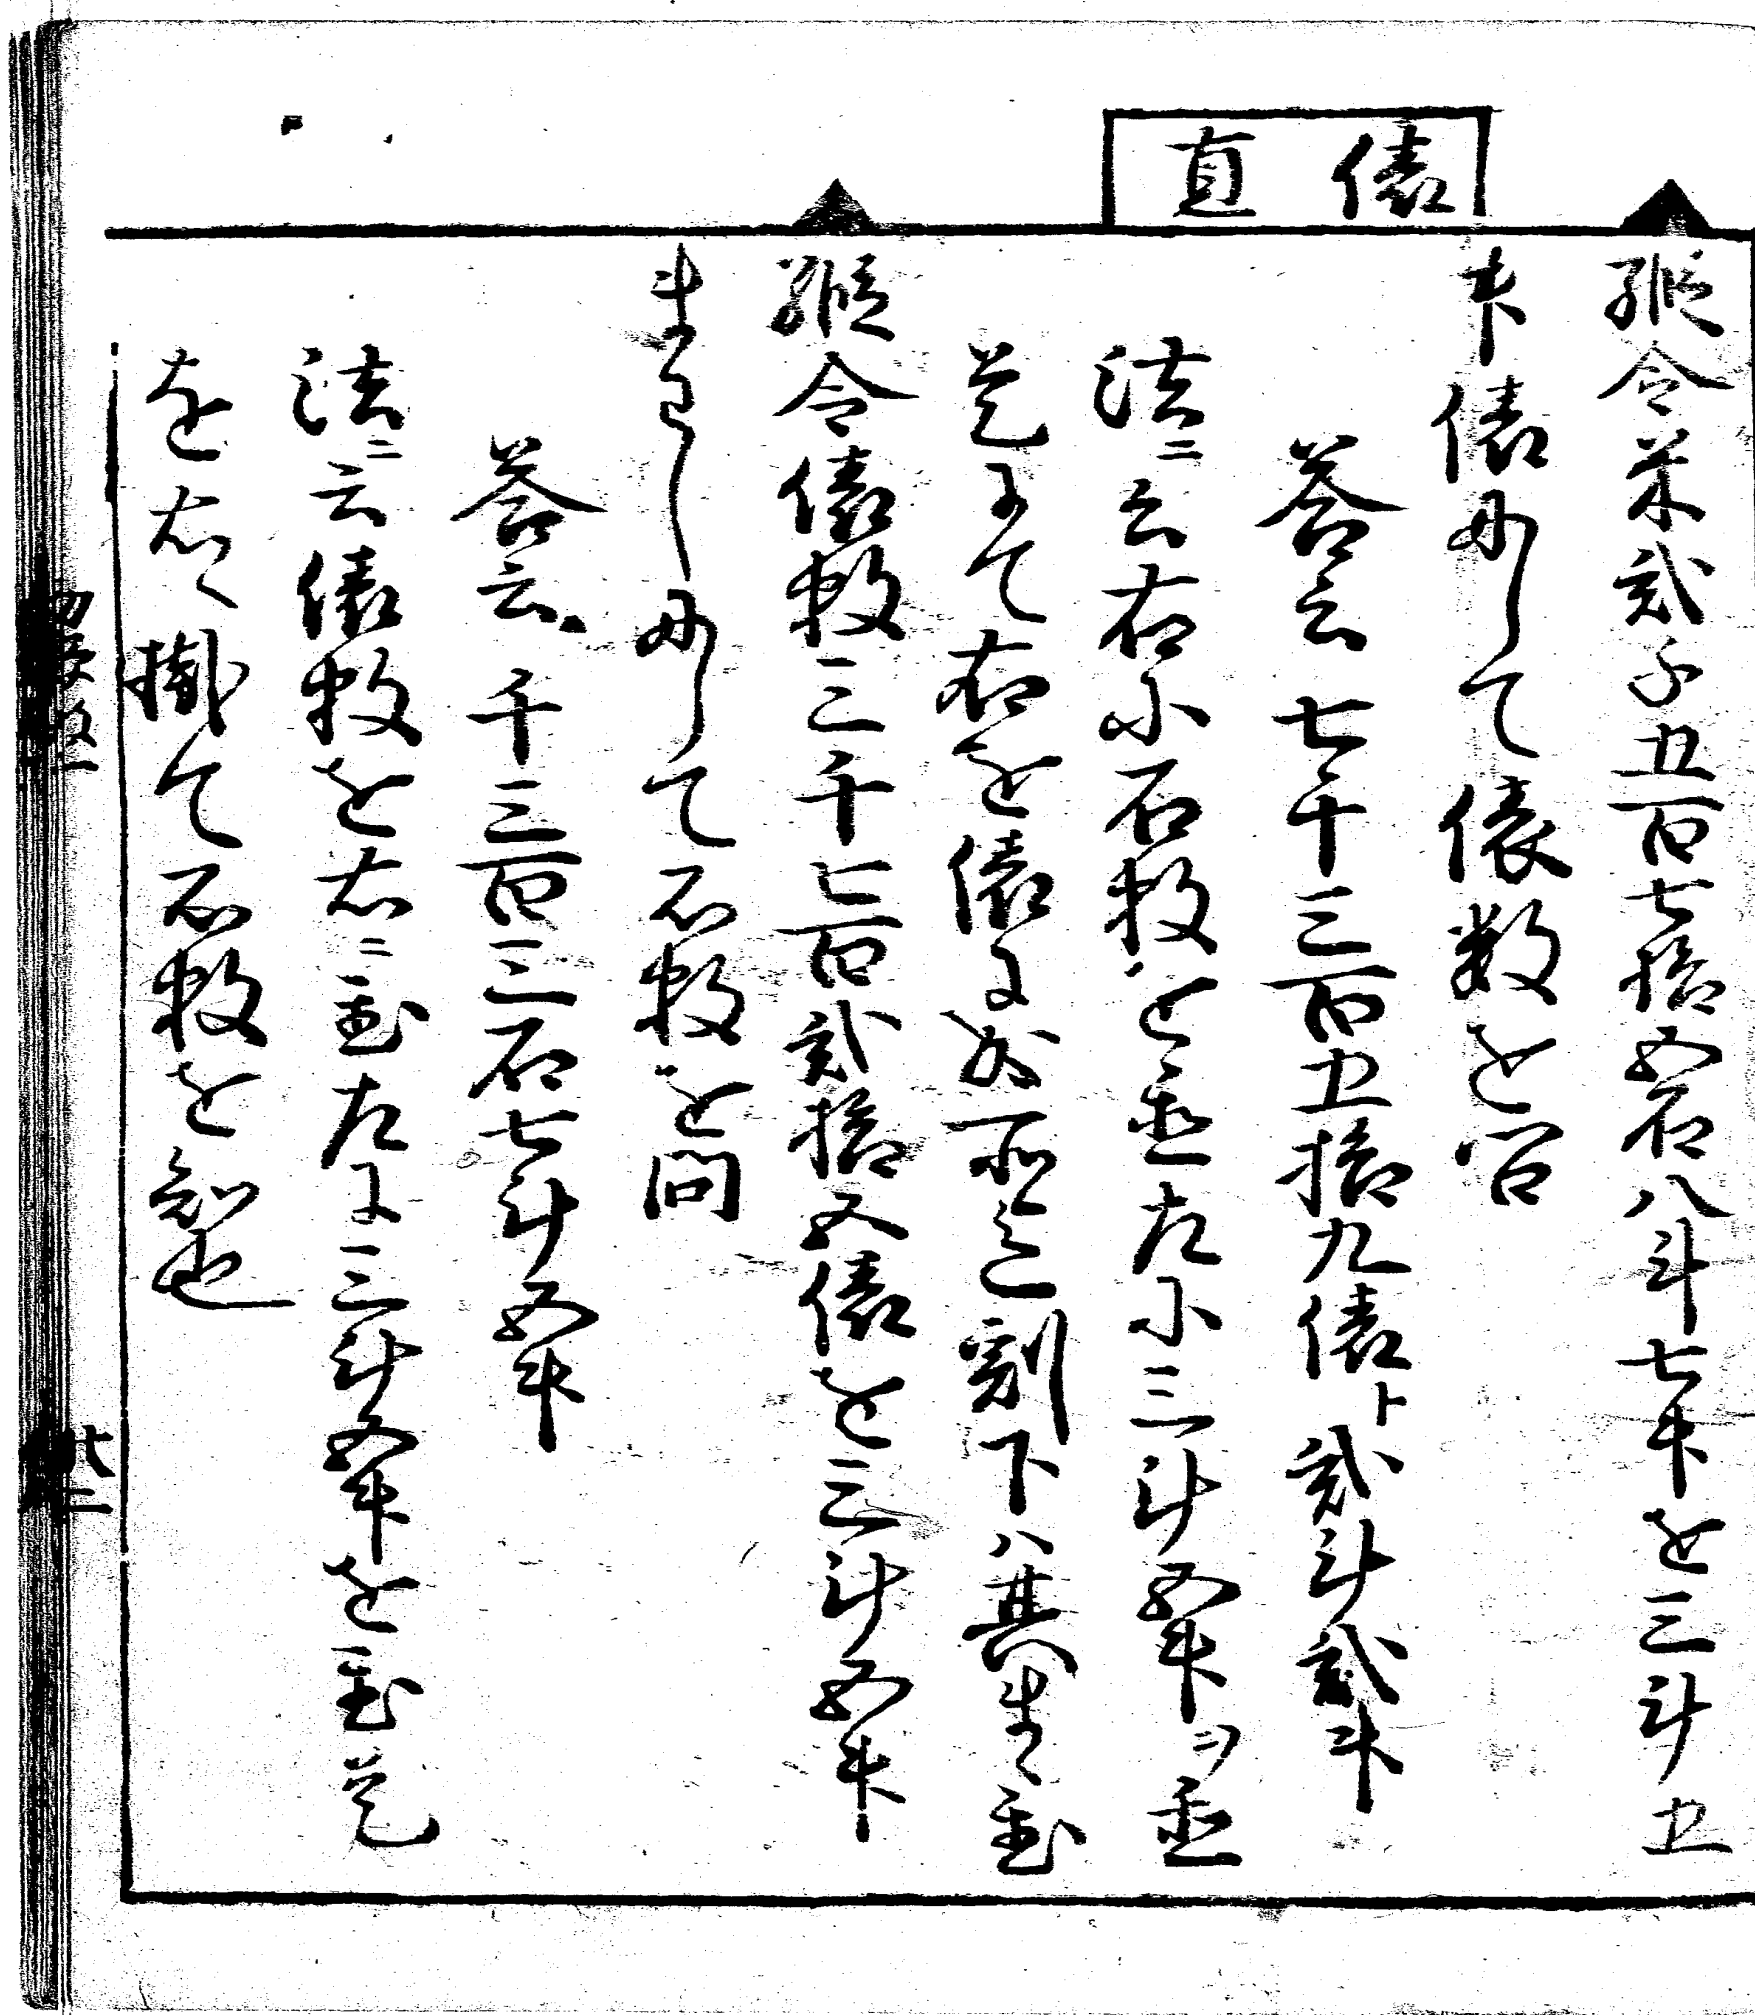 俵直
縦令米弐千五百七拾五石八斗七升を三斗五
升俵にして俵数を問
答云七千三百五拾九俵ト弐斗弐升
法ニ云右に石数を置左に三斗五升ヲ置
是にて右を俵に成所迄割下ハ其まゝ置
縦令俵数三千七百弐拾五俵を三斗五升
まわしにして石数を問
答云千三百三石七斗五升
法ニ云俵数を右ニ置左に三斗五升を置是
を右へ掛て石数を知也
廿二